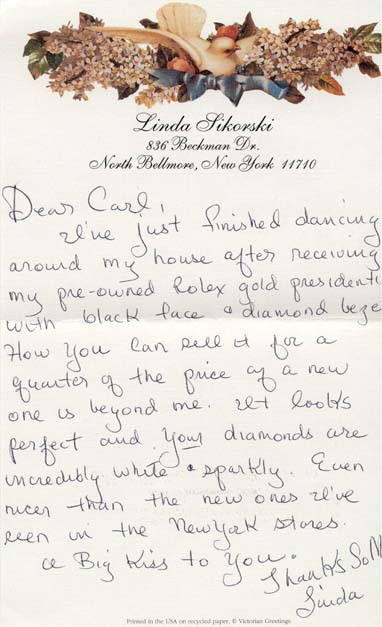 Linda Sikorski
836 Beckman Dr.
North Bellmore, New York 11710
Dear Carl,
I've just finished dancing
around my house after receiving
my pre-owned Rolex gold presidenti
with black face & diamond beze
How you can sell it for a
quarter of the price of a new
one is beyond me. It looks
perfect and your diamonds are
incredibly white & sparkly. Even
nicer than the new ones I've
seen in the New York stores.
a Big Kiss to you.
Thanks So M
Linda
Printed in the USA on recycled paper, © Victorian Greetings.